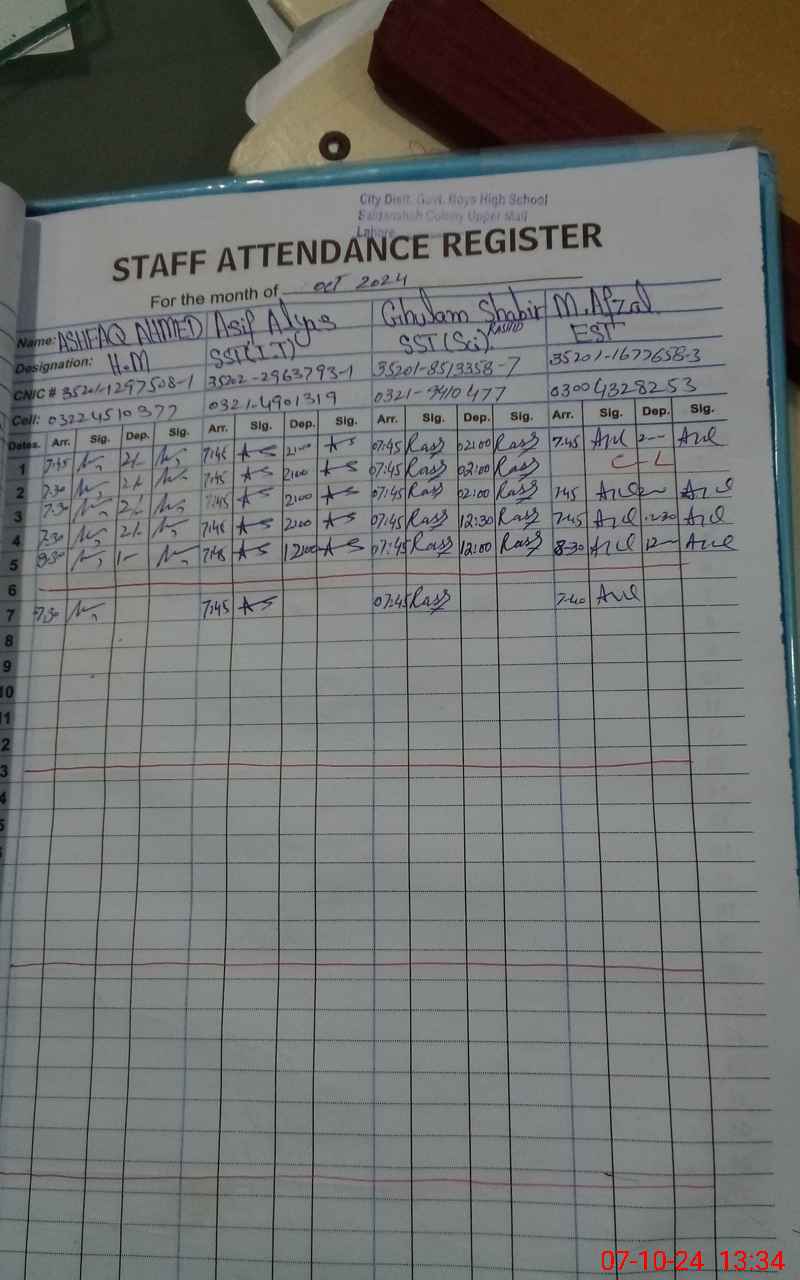 City Distt. Govt. Boys High School
Colony Upper Mall
Lahore
STAFF ATTENDANCE REGISTER
For the month of oct 2024
Name: ASHFAQ AHMED Asif Alyas Ghulam Shabir M. Afzal
Designation: H.M SST(I.T) SST (Sci) RASHID EST
CNIC # 35201-1297508-1 35202-2963793-1 35201-8513358-7 35201-1677658-3
Cell: 03224510377 0321-4901319 0321-9410477 03004328253
Dates. Arr. Sig. Dep. Sig. Arr. Sig. Dep. Sig. Arr. Sig. Dep. Sig. Arr. Sig. Dep. Sig.
1 7:45 2/- 7:45 2:00 07:45 02:00 7:45 2—
2 7:30 2/- 7:45 2:00 07:45 02:00 C-L
3 7:30 2/- 7:45 2:00 07:45 02:00 7:45 2—
4 7:30 2/- 7:45 2:00 07:45 12:30 7:45 12:30
5 8:30 1- 7:45 12:00 07:45 12:00 8:30 12—
6
7 7:30 7:45 07:45 7:40
8
9
10
11
2
3
4
5
07-10-24 13:34